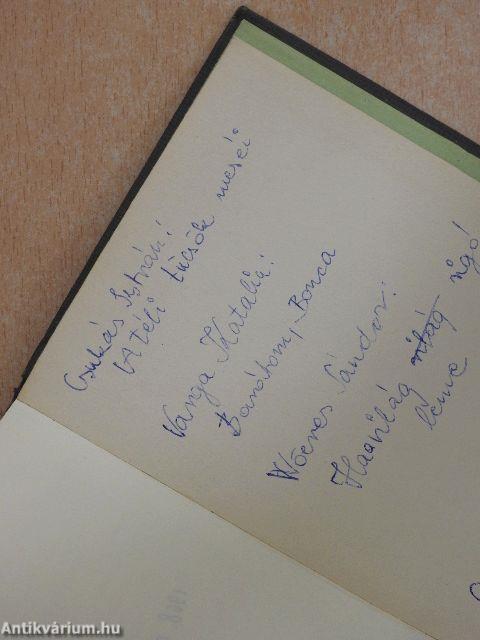 Csukás István:
A téli tücsök meséi
Varga Katalin:
Barátom, Bonca
Wöeres Sándor:
Ha a világ rigó!
lenne
Antikvárium.hu